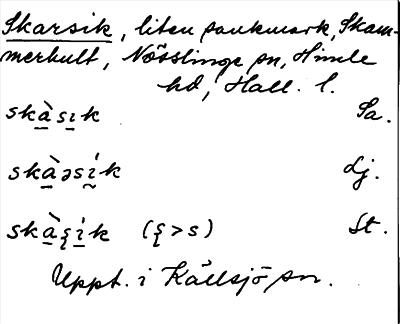 Skarsik, liten sankmark, Skam-
merhult, Nösslinge sn, Himle
hd, Hall. l.
skàsik Sa.
skàəsík Lj.
skàʂík (ʂ>s) St.
Uppt. i Källsjö sn.